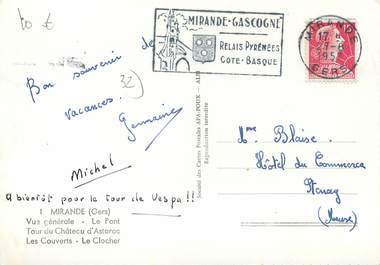 10 €
MIRANDE-GASCOGNE
RELAIS PYRÉNÉES
COTE-BASQUE
MIRANDE
GERS
Bon souvenir de
vacances.
32
Germaine
Michel
A bientôt pour le tour de Vespa !!
1 MIRANDE (Gers)
Vue générale - Le Pont
Tour du Château d'Astarac
Les Couverts - Le Clocher
Société des Cartes Postales APA-POUX - ALBI
Reproduction interdite
Mme Blaise
Hôtel du Commerce
Stenay
(Meuse)